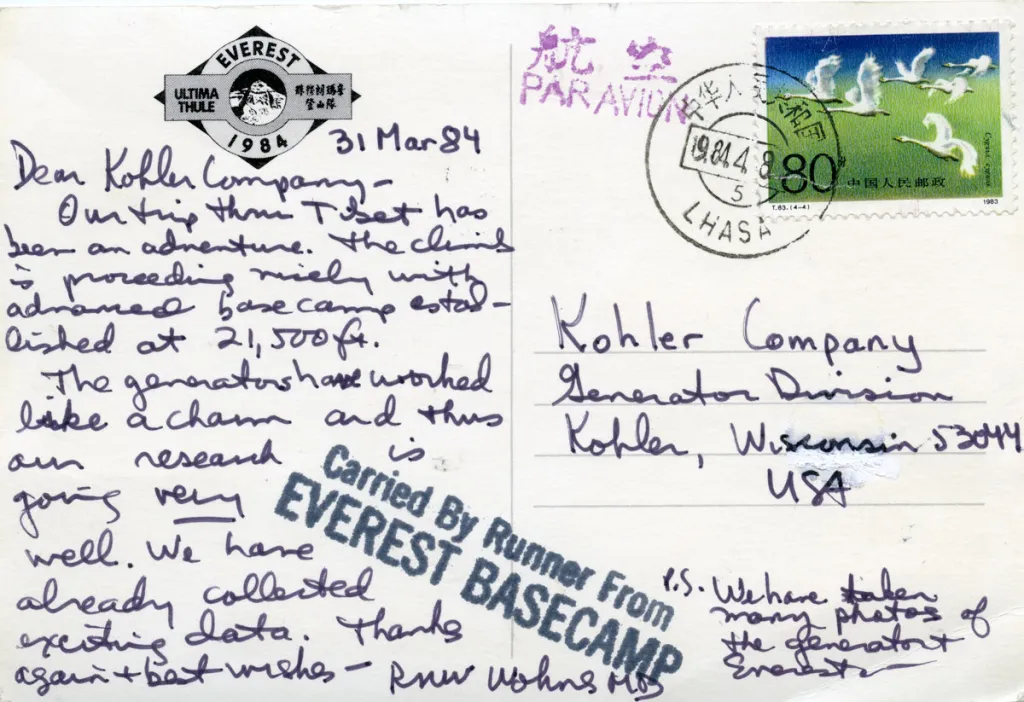 EVEREST
ULTIMA THULE
1984
31 Mar 84
Dear Kohler Company –
Our trip thru Tibet has
been an adventure. The climb
is proceeding nicely with
advanced base camp estab-
lished at 21,500 ft.
The generators have worked
like a charm and thus
our research is
going very
well. We have
already collected
exciting data. Thanks
again + best wishes –
RNW Wohns MD
Carried By Runner From
EVEREST BASECAMP
航空
PAR AVION
中华人民共和国
1984.4.8
5
LHASA
80
中国人民邮政
T.83.(4-4)
1983
Kohler Company
Generator Division
Kohler, Wisconsin 53044
USA
P.S. We have taken
many photos of
the generator +
Everest –